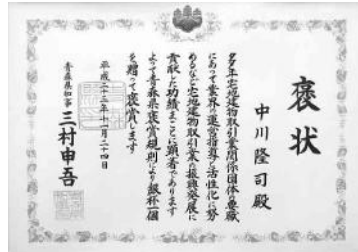 褒状
中川隆司殿
多年宅地建物取引業関係団体の要職
にあって業界の運営指導と活性化に努
めるなど宅地建物取引業の振興発展に
貢献した功績まことに顕著であります
よって青森県褒賞規則により銀杯一個
を贈って褒賞します
平成二十三年十一月二十四日
青森県知事 三村申吾